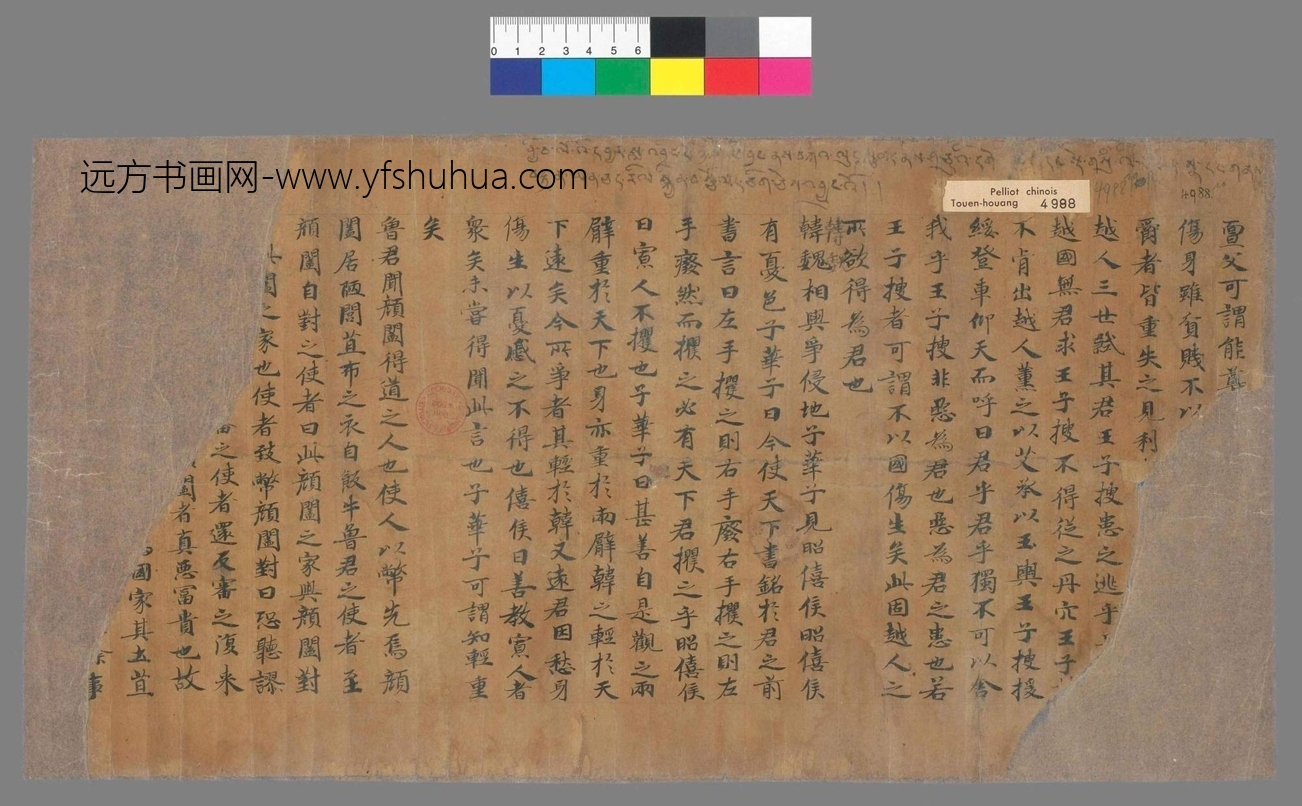 0 1 2 3 4 5 6
远方书画网-www.yfshuhua.com
Pelliot chinois
Touen-houang 4988
4988
亶父可謂能尊
傷身雖貧賤不以
爵者皆重失之見利
越人三世弑其君王子搜患之逃乎
越國無君求王子搜不得從之丹穴王子
不肯出越人薰之以艾承以玉輿王子搜援
綏登車仰天而呼曰君乎君乎獨不可以舍
我乎王子搜非惡為君也惡為君之患也若
王子搜者可謂不以國傷生矣此固越人之
所欲得為君也
韓魏相與爭侵地子華子見昭僖侯昭僖侯
有憂色子華子曰今使天下書銘於君之前
書言曰左手攫之則右手廢右手攫之則左
手廢然而攫之必有天下君攫之乎昭僖侯
曰寡人不攫也子華子曰甚善自是觀之兩
臂重於天下也身亦重於兩臂韓之輕於天
下遠矣今所爭者其輕於韓又遠君固愁身
傷生以憂慼之不得也僖侯曰善教寡人者
衆矣未嘗得聞此言也子華子可謂知輕重
矣
魯君聞顏闔得道之人也使人以幣先焉顏
闔居陋閭苴布之衣自飯牛魯君之使者至
顏闔自對之使者曰此顏闔之家與顏闔對
此闔之家也使者致幣顏闔對曰恐聽謬
之使者還反審之復來
闔者真惡富貴也故
國家其土苴
事